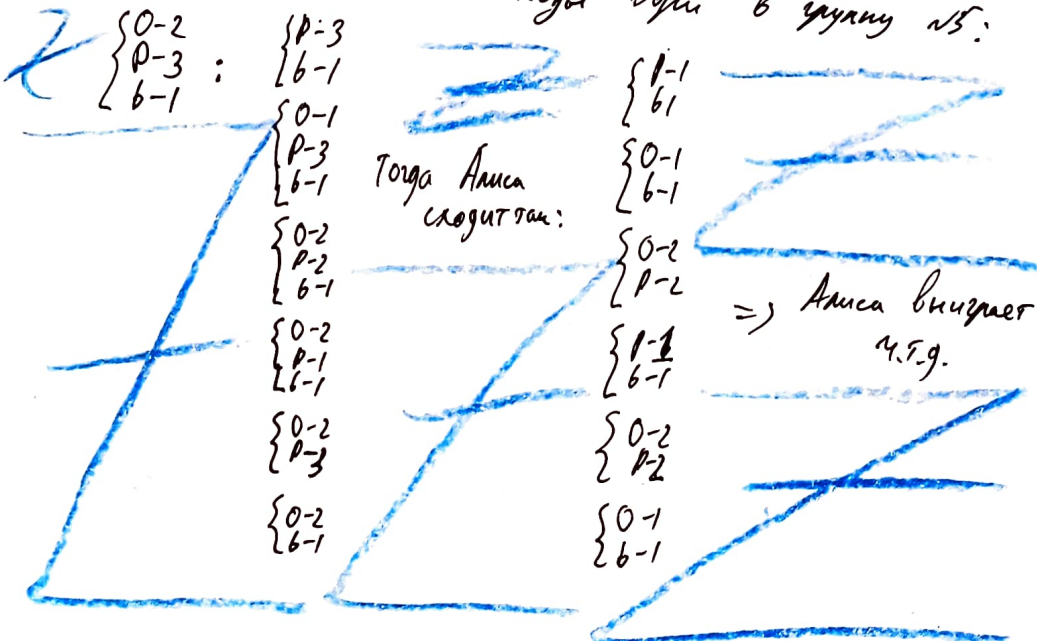 в группу №5:
{ О-2
Р-3
б-1 :
{ Р-3
б-1
{ О-1
Р-3
б-1
{ О-2
Р-2
б-1
{ О-2
Р-1
б-1
{ О-2
Р-3
{ О-2
б-1
Тогда Алиса
сходит так:
{ Р-1
б1
{ О-1
б-1
{ О-2
Р-2
{ Р-1
б-1
{ О-2
Р-2
{ О-1
б-1
=> Алиса выиграет
ч.т.д.